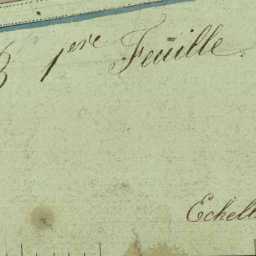 B 1ere Feüille.
Echell